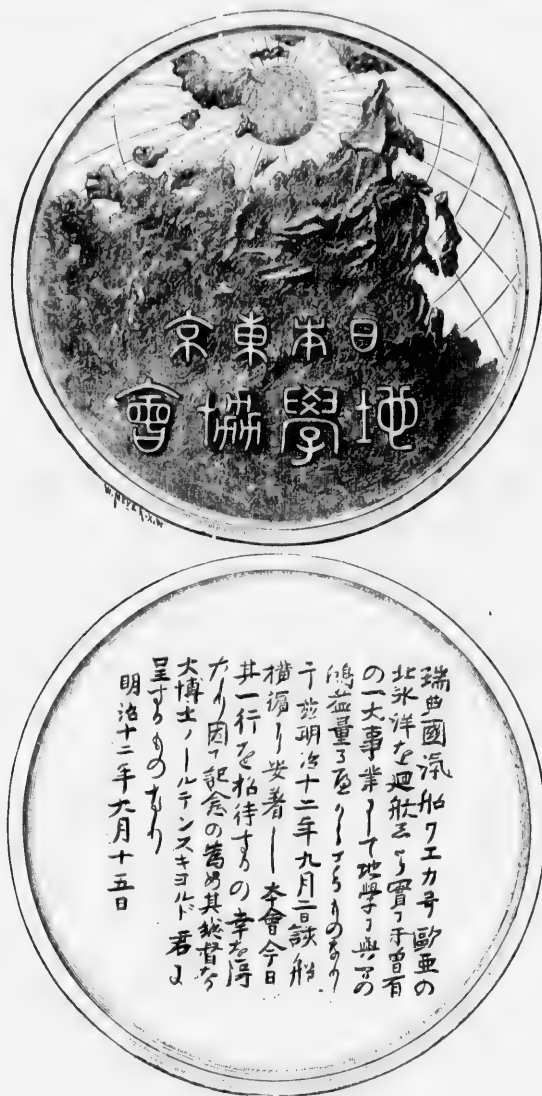 日本東京
地學協會
瑞典國汽船ワエカ号歐亜の
北氷洋を廻航せる實ニ未曽有
の一大事業ニして地學ニ與ふるの
鴻益量る可からさるものなり
于茲明治十二年九月二日該船
横濱ニ安着し本會今日
其一行を招待するの幸を得
たり因て記念の為め其総督なる
大博士ノールデンスキヨルド君に
呈するものなり
明治十二年九月十五日